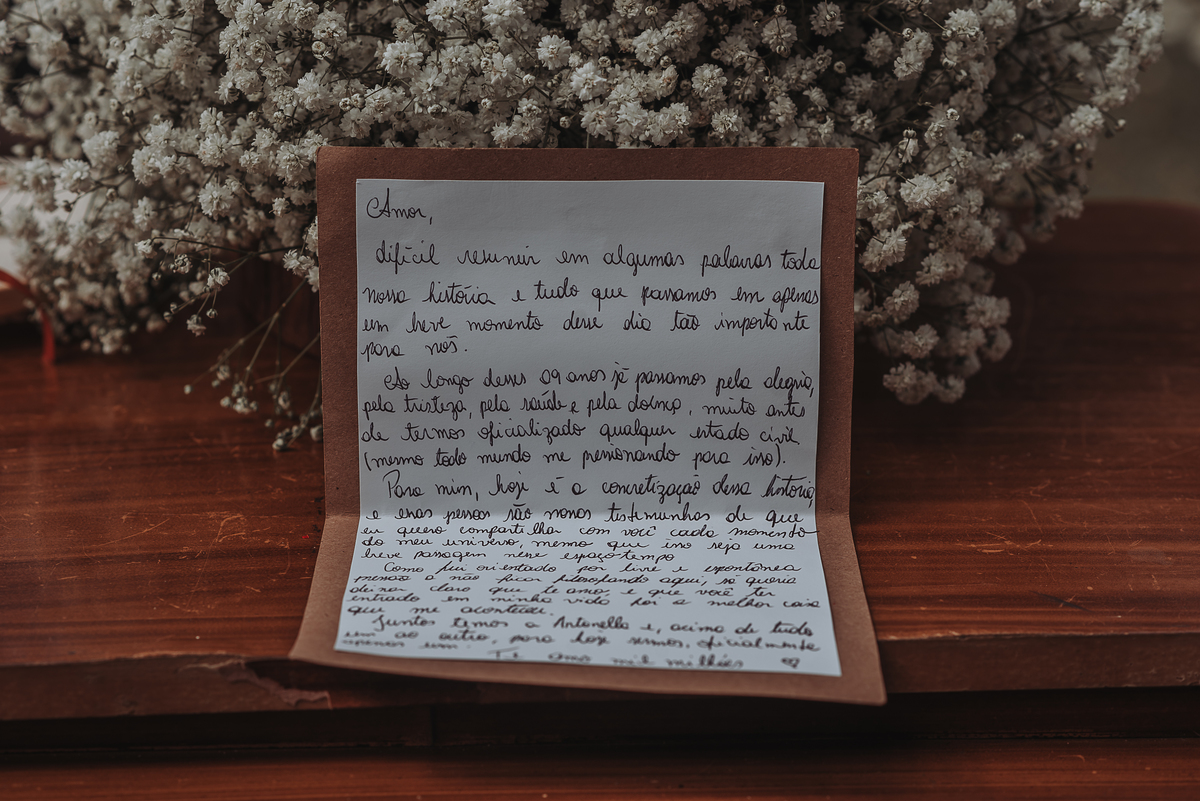 Amor,
difícil resumir em algumas palavras toda
nossa história e tudo que passamos em apenas
um breve momento desse dia tão importante
para nós.
Ao longo desses 09 anos já passamos pela alegria,
pela tristeza, pela saúde e pela doença, muito antes
de termos oficializado qualquer estado civil
(mesmo todo mundo me pressionando para isso).
Para mim, hoje é a concretização dessa história,
e essas pessoas são nossas testemunhas de que
eu quero compartilhar com você cada momento
do meu universo, mesmo que isso seja uma
breve passagem nesse espaço-tempo
Como fui orientado por livre e espontânea
pressão a não ficar filosofando aqui, só queria
deixar claro que te amo, e que você ter
entrado em minha vida foi a melhor coisa
que me aconteceu.
Juntos temos a Antonella e, acima de tudo
um ao outro, para hoje sermos, oficialmente
apenas um. Te amo mil milhões ♡